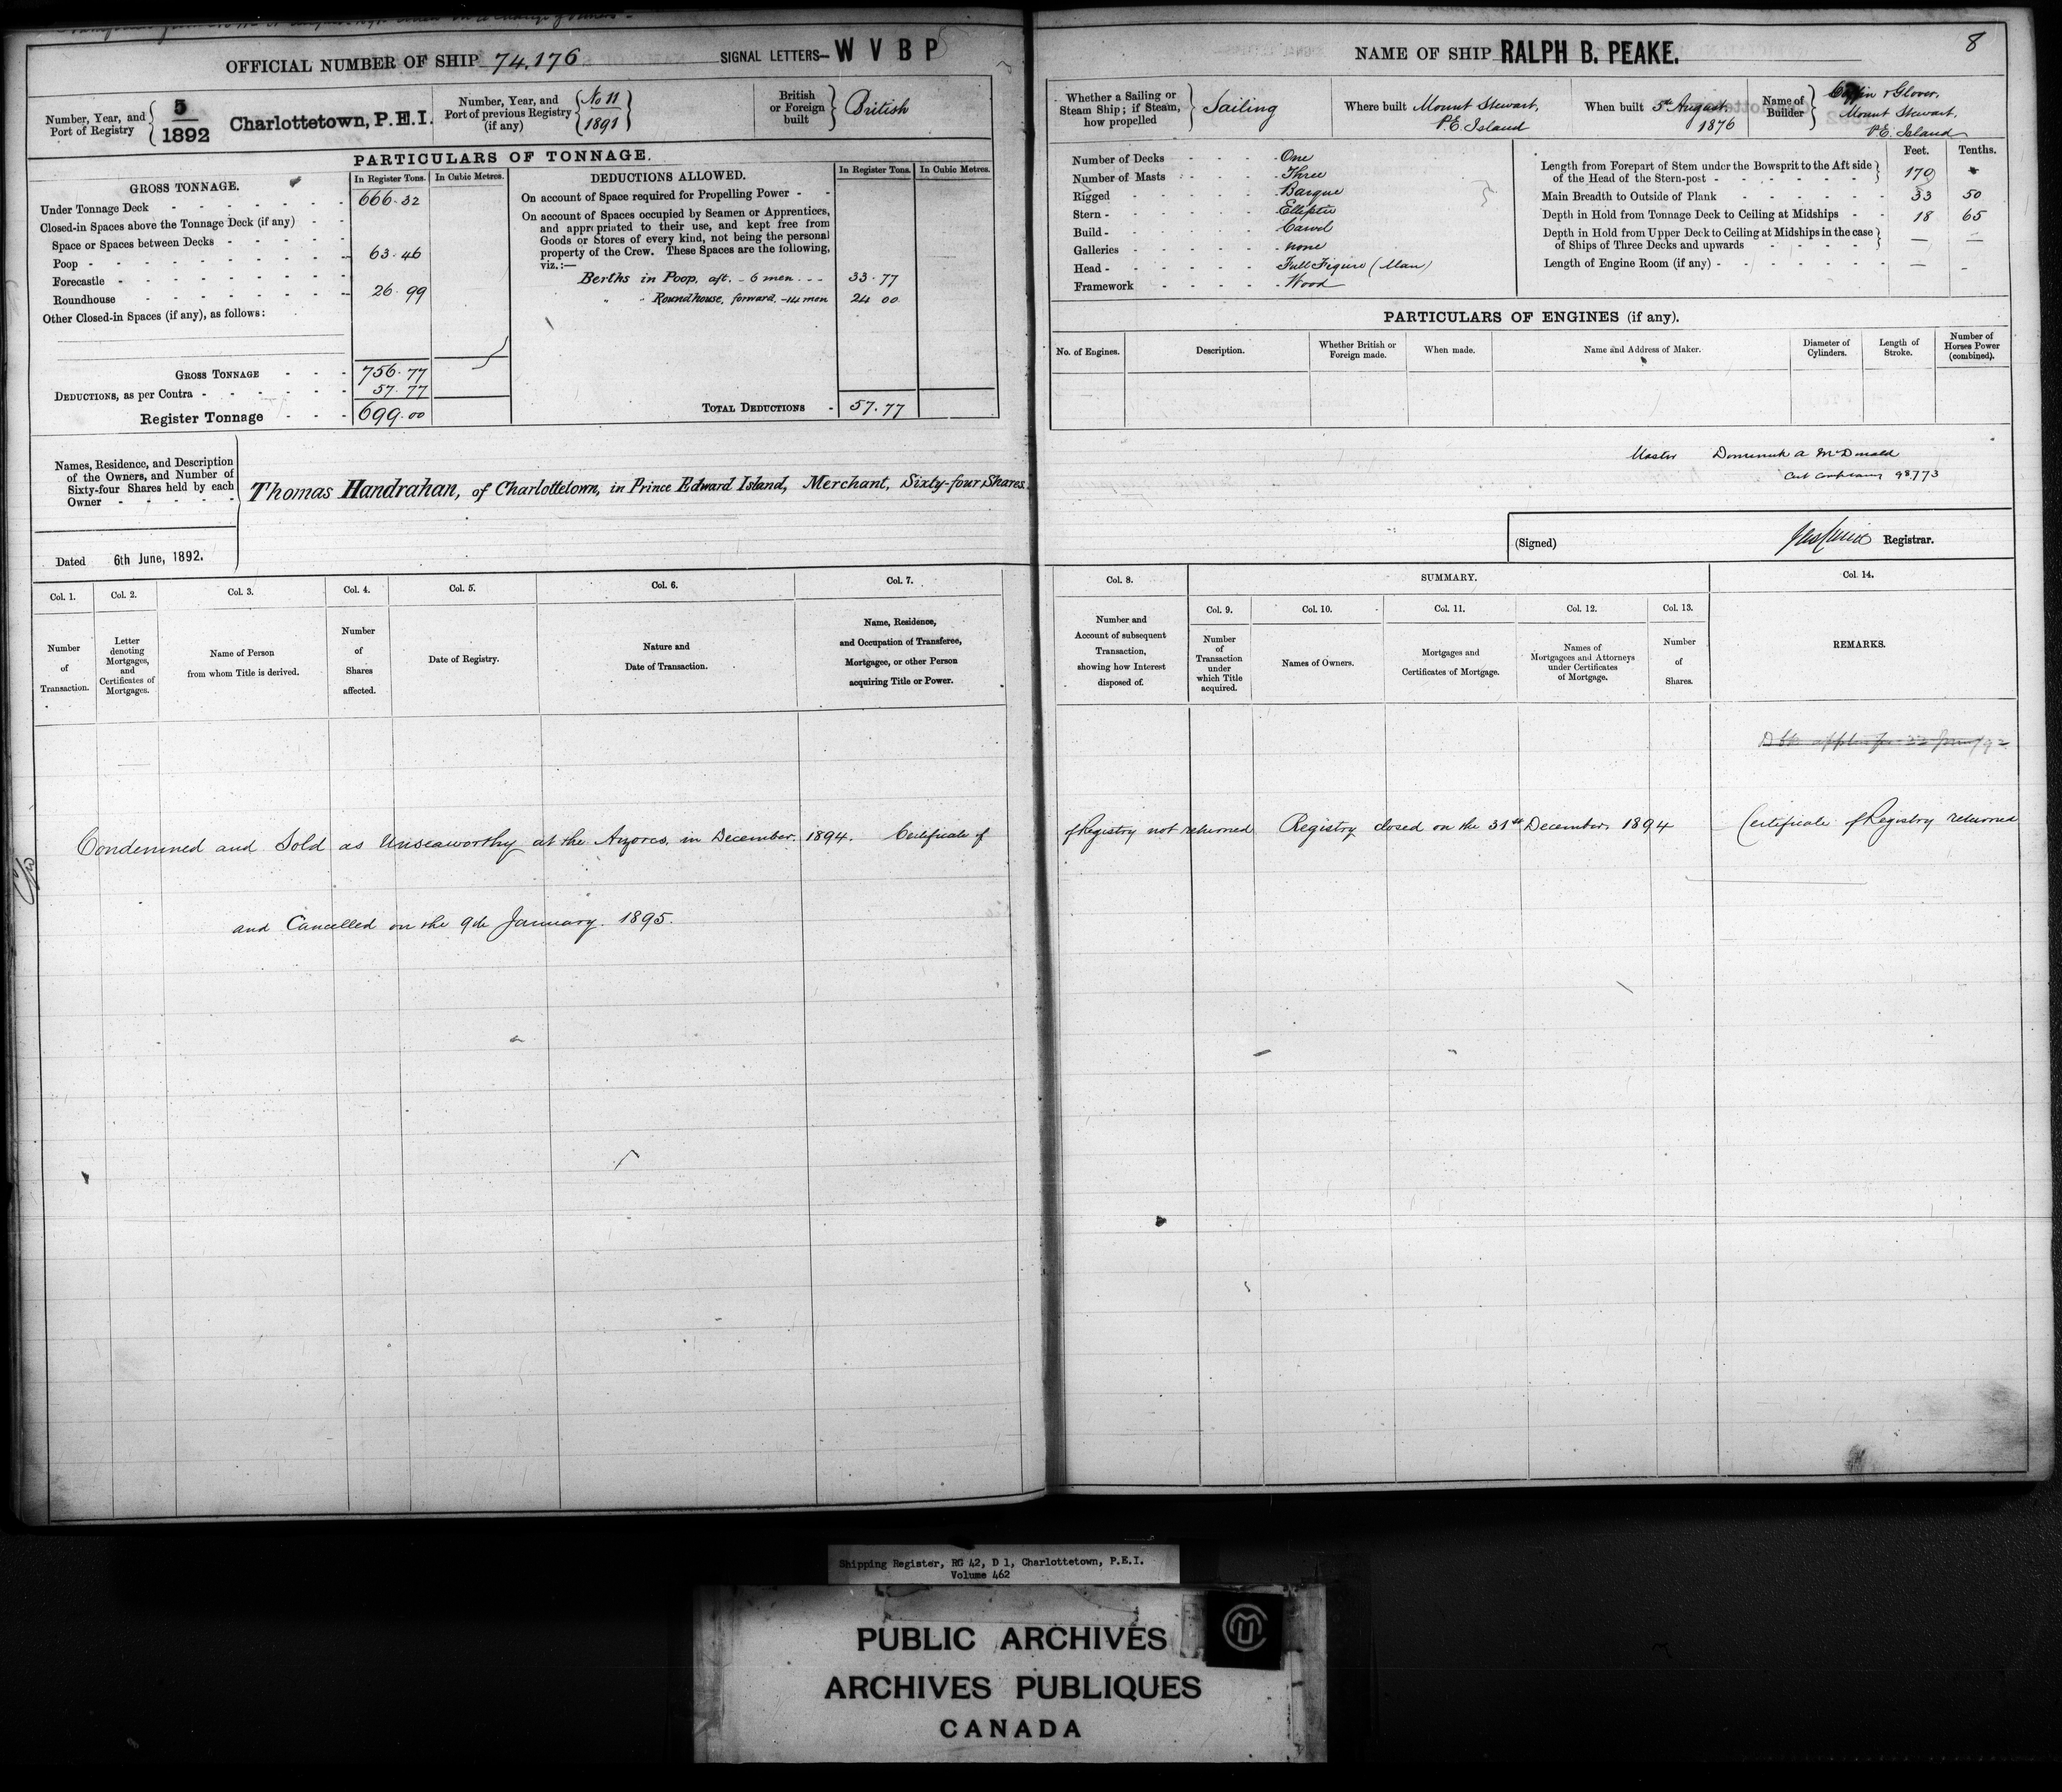 OFFICIAL NUMBER OF SHIP 74.176
SIGNAL LETTERS— W V B P
Number, Year, and Port of Registry
5
1892
Charlottetown, P.E.I.
Number, Year, and Port of previous Registry (if any)
No 11
1891
British or Foreign built
British
PARTICULARS OF TONNAGE.
GROSS TONNAGE.
In Register Tons.
In Cubic Metres.
Under Tonnage Deck 666.32
Closed-in Spaces above the Tonnage Deck (if any)
Space or Spaces between Decks
Poop 63.46
Forecastle
Roundhouse 26.99
Other Closed-in Spaces (if any), as follows:
GROSS TONNAGE 756.77
DEDUCTIONS, as per Contra 57.77
Register Tonnage 699.00
DEDUCTIONS ALLOWED.
In Register Tons.
In Cubic Metres.
On account of Space required for Propelling Power
On account of Spaces occupied by Seamen or Apprentices,
and appropriated to their use, and kept free from
Goods or Stores of every kind, not being the personal
property of the Crew. These Spaces are the following,
viz.:—
Berths in Poop, aft. - 6 men 33.77
" " Roundhouse, forward, - 14 men 24 00
TOTAL DEDUCTIONS 57.77
Names, Residence, and Description
of the Owners, and Number of
Sixty-four Shares held by each
Owner
Thomas Handrahan, of Charlottetown, in Prince Edward Island, Merchant, Sixty-four Shares.
Dated 6th June, 1892.
Col. 1.
Number of Transaction.
Col. 2.
Letter denoting Mortgages, and Certificates of Mortgages.
Col. 3.
Name of Person from whom Title is derived.
Col. 4.
Number of Shares affected.
Col. 5.
Date of Registry.
Col. 6.
Nature and Date of Transaction.
Col. 7.
Name, Residence, and Occupation of Transferee, Mortgagee, or other Person acquiring Title or Power.
NAME OF SHIP RALPH B. PEAKE.
8
Whether a Sailing or Steam Ship; if Steam, how propelled
Sailing
Where built Mount Stewart,
P.E. Island
When built 5th August,
1876
Name of Builder
Coffin & Glover,
Mount Stewart,
P.E. Island
Number of Decks One
Number of Masts Three
Rigged Barque
Stern Elliptic
Build Carvel
Galleries none
Head Full Figure (Man)
Framework Wood
Feet. Tenths.
Length from Forepart of Stem under the Bowsprit to the Aft side
of the Head of the Stern-post 170
Main Breadth to Outside of Plank 33 50
Depth in Hold from Tonnage Deck to Ceiling at Midships 18 65
Depth in Hold from Upper Deck to Ceiling at Midships in the case
of Ships of Three Decks and upwards — —
Length of Engine Room (if any) — -
PARTICULARS OF ENGINES (if any).
No. of Engines.
Description.
Whether British or Foreign made.
When made.
Name and Address of Maker.
Diameter of Cylinders.
Length of Stroke.
Number of Horses Power (combined).
Master Dominick A McDonald
98773
(Signed) Registrar.
Col. 8.
Number and Account of subsequent Transaction, showing how Interest disposed of.
SUMMARY.
Col. 9.
Number of Transaction under which Title acquired.
Col. 10.
Names of Owners.
Col. 11.
Mortgages and Certificates of Mortgage.
Col. 12.
Names of Mortgagees and Attorneys under Certificates of Mortgage.
Col. 13.
Number of Shares.
Col. 14.
REMARKS.
Condemned and Sold as Unseaworthy at the Azores, in December. 1894. Certificate of Registry not returned Registry closed on the 31st December 1894 Certificate of Registry returned
and Cancelled on the 9th January. 1895.
Shipping Register, RG 42, D 1, Charlottetown, P.E.I.
Volume 462
PUBLIC ARCHIVES
ARCHIVES PUBLIQUES
CANADA